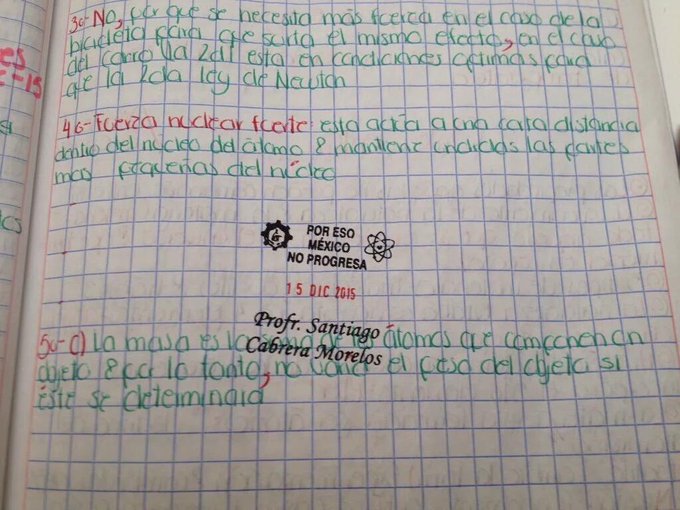 es
-15
3.- No, porque se necesita más fuerza en el caso de la
bicicleta para que surta el mismo efecto, en el caso
del carro la 2da esta en condiciones optimas para
que la 2da ley de Newton
4.- Fuerza nuclear fuerte: esta actúa a una corta distancia
dentro del núcleo del átomo & mantiene unidas las partes
mas pequeñas del núcleo
POR ESO
MÉXICO
NO PROGRESA
15 DIC 2015
Profr. Santiago
Cabrera Morelos
La masa es átomos que componen un
objeto & por lo tanto, no el peso del objeto si
éste se determinara